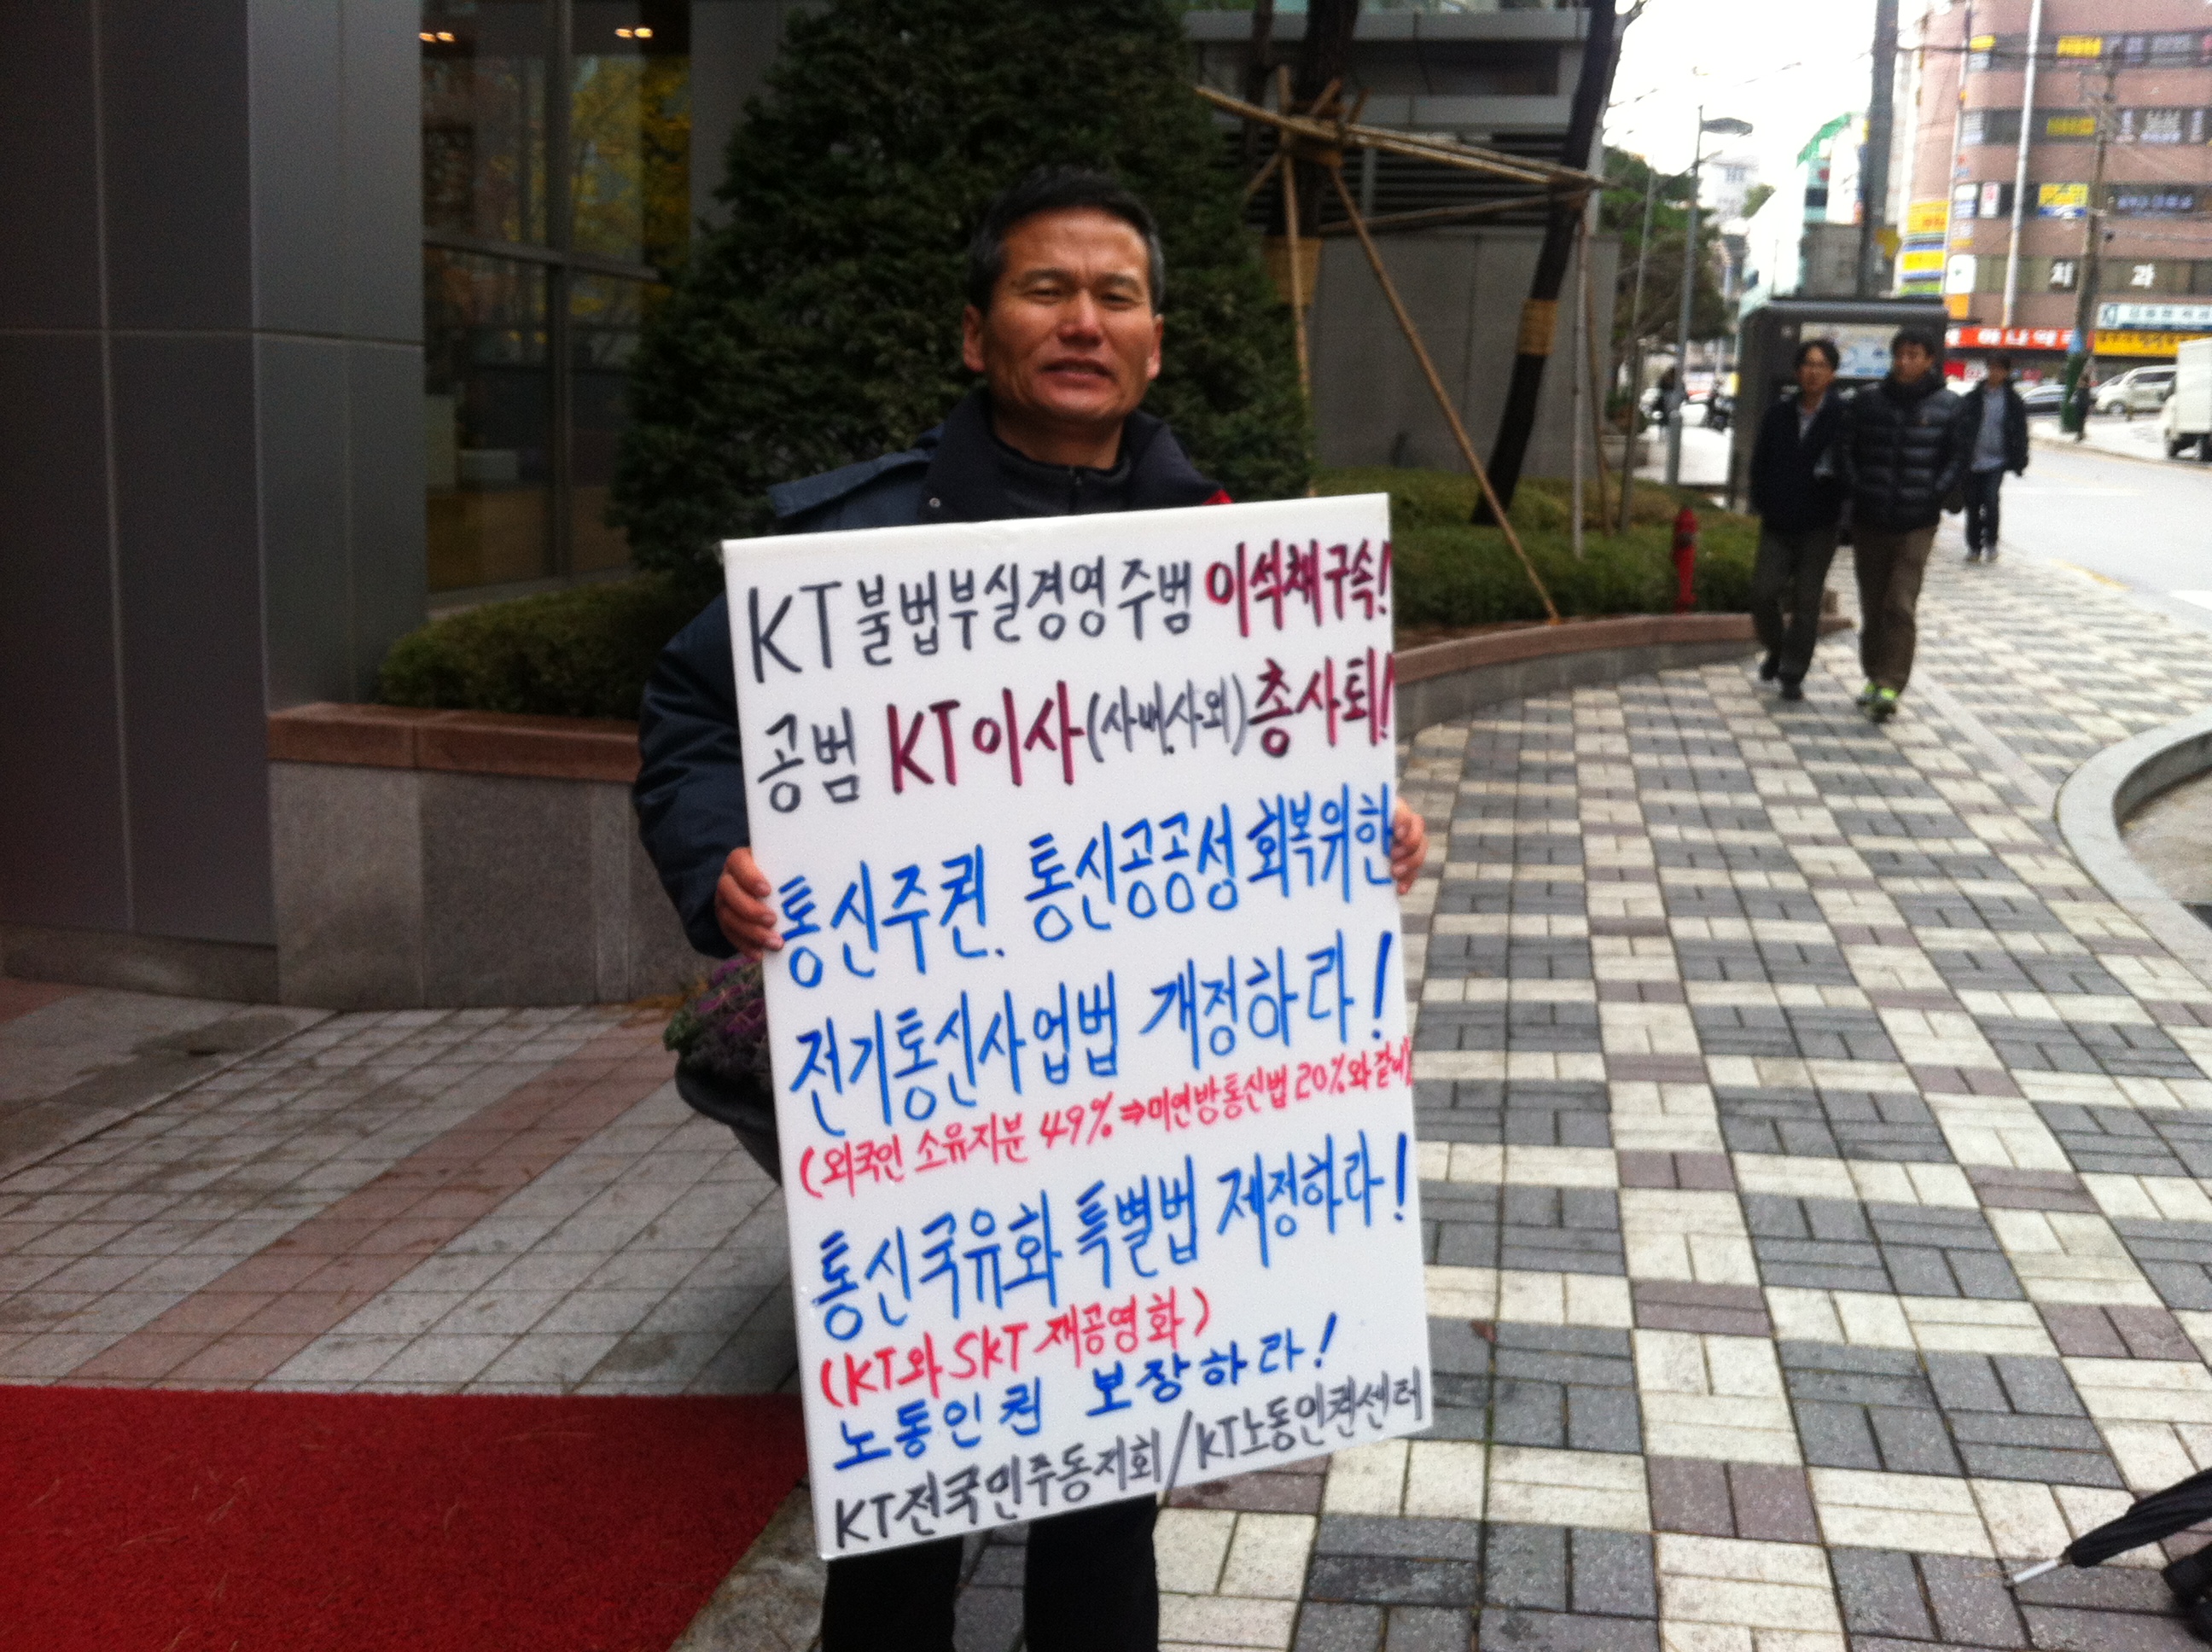 KT불법부실경영주범 이석채구속!
공범 KT이사(사내.사외)총사퇴!
통신주권. 통신공공성 회복위한
전기통신사업법 개정하라!
(외국인 소유지분 49%⇒미연방통신법 20%와 같이)
통신국유화 특별법 제정하라!
(KT와 SKT 재공영화)
노동인권 보장하라!
KT전국민주동지회/KT노동인권센터
치과